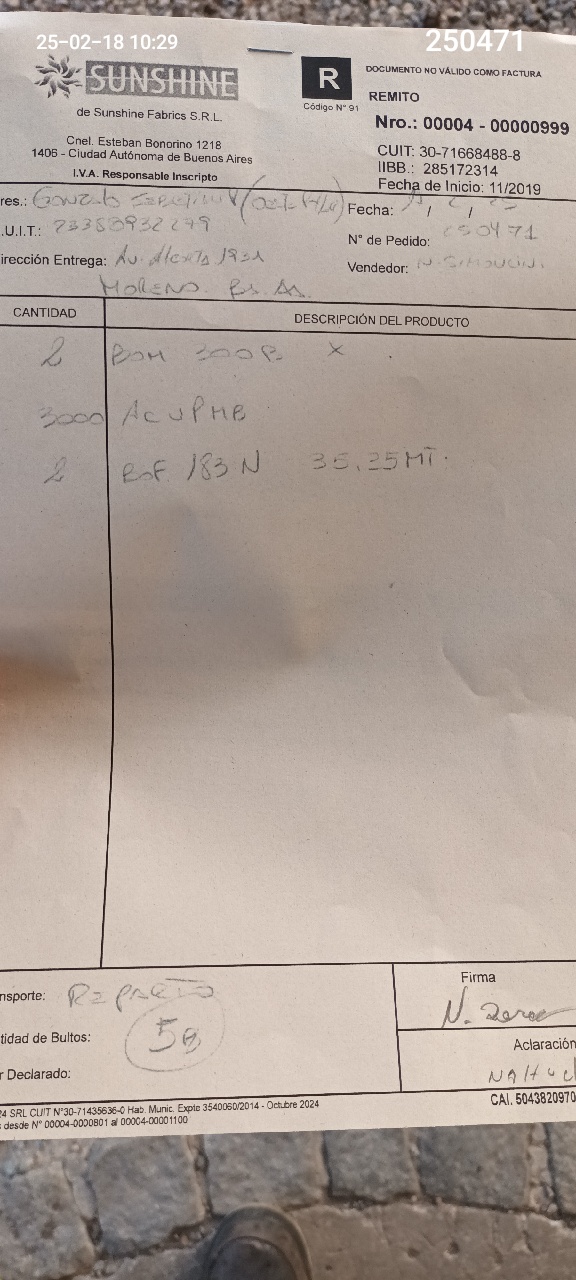 25-02-18 10:29
250471
SUNSHINE
de Sunshine Fabrics S.R.L.
Cnel. Esteban Bonorino 1218
1406 - Ciudad Autónoma de Buenos Aires
I.V.A. Responsable Inscripto
R
Código N° 91
DOCUMENTO NO VÁLIDO COMO FACTURA
REMITO
Nro.: 00004 - 00000999
CUIT: 30-71668488-8
IIBB.: 285172314
Fecha de Inicio: 11/2019
res.: Gonzalo
Fecha: / /
.U.I.T.: 23380932279
N° de Pedido: 250471
irección Entrega: Av. 1931
Vendedor: N.
MORENO. Bs. As.
CANTIDAD DESCRIPCIÓN DEL PRODUCTO
2 300 X
3000 ACUPMB
2 183 N 35,25 MT.
nsporte: REPARTO
tidad de Bultos: 5B
r Declarado:
Firma
N.
Aclaración
NAHUEL
24 SRL CUIT N°30-71435636-0 Hab. Munic. Expte 3540060/2014 - Octubre 2024
s desde N° 00004-0000801 al 00004-00001100
CAI. 5043820970